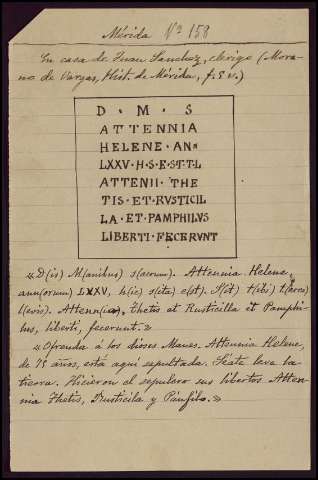 Mérida Nº 158
En casa de Juan Sanchez, clérigo (Mora-
no de Vargas, Hist. de Mérida, f. 5 v.)
D · M · S
ATTENNIA
HELENE · ANn
LXXV · H · S · E · S · T · T · L
ATTENII · THE
TIS · ET · RVSTICIL
LA · ET · PAMPHILVS
LIBERTI · FECERVNT
«D(is) M(anibus) s(acrum). Attennia Helene,
ann(orum) LXXV, h(ic) s(ita) e(st). S(it) t(ibi) t(erra)
l(evis). Attenn(ia), Thetis et Rusticilla et Pamphi-
lus, liberti, fecerunt.»
«Ofrenda á los dioses Manes. Attennia Helene,
de 75 años, está aquí sepultada. Séate leve la
tierra. Hicieron el sepulcro sus libertos Atten-
nia Thetis, Rusticila y Pánfilo.»